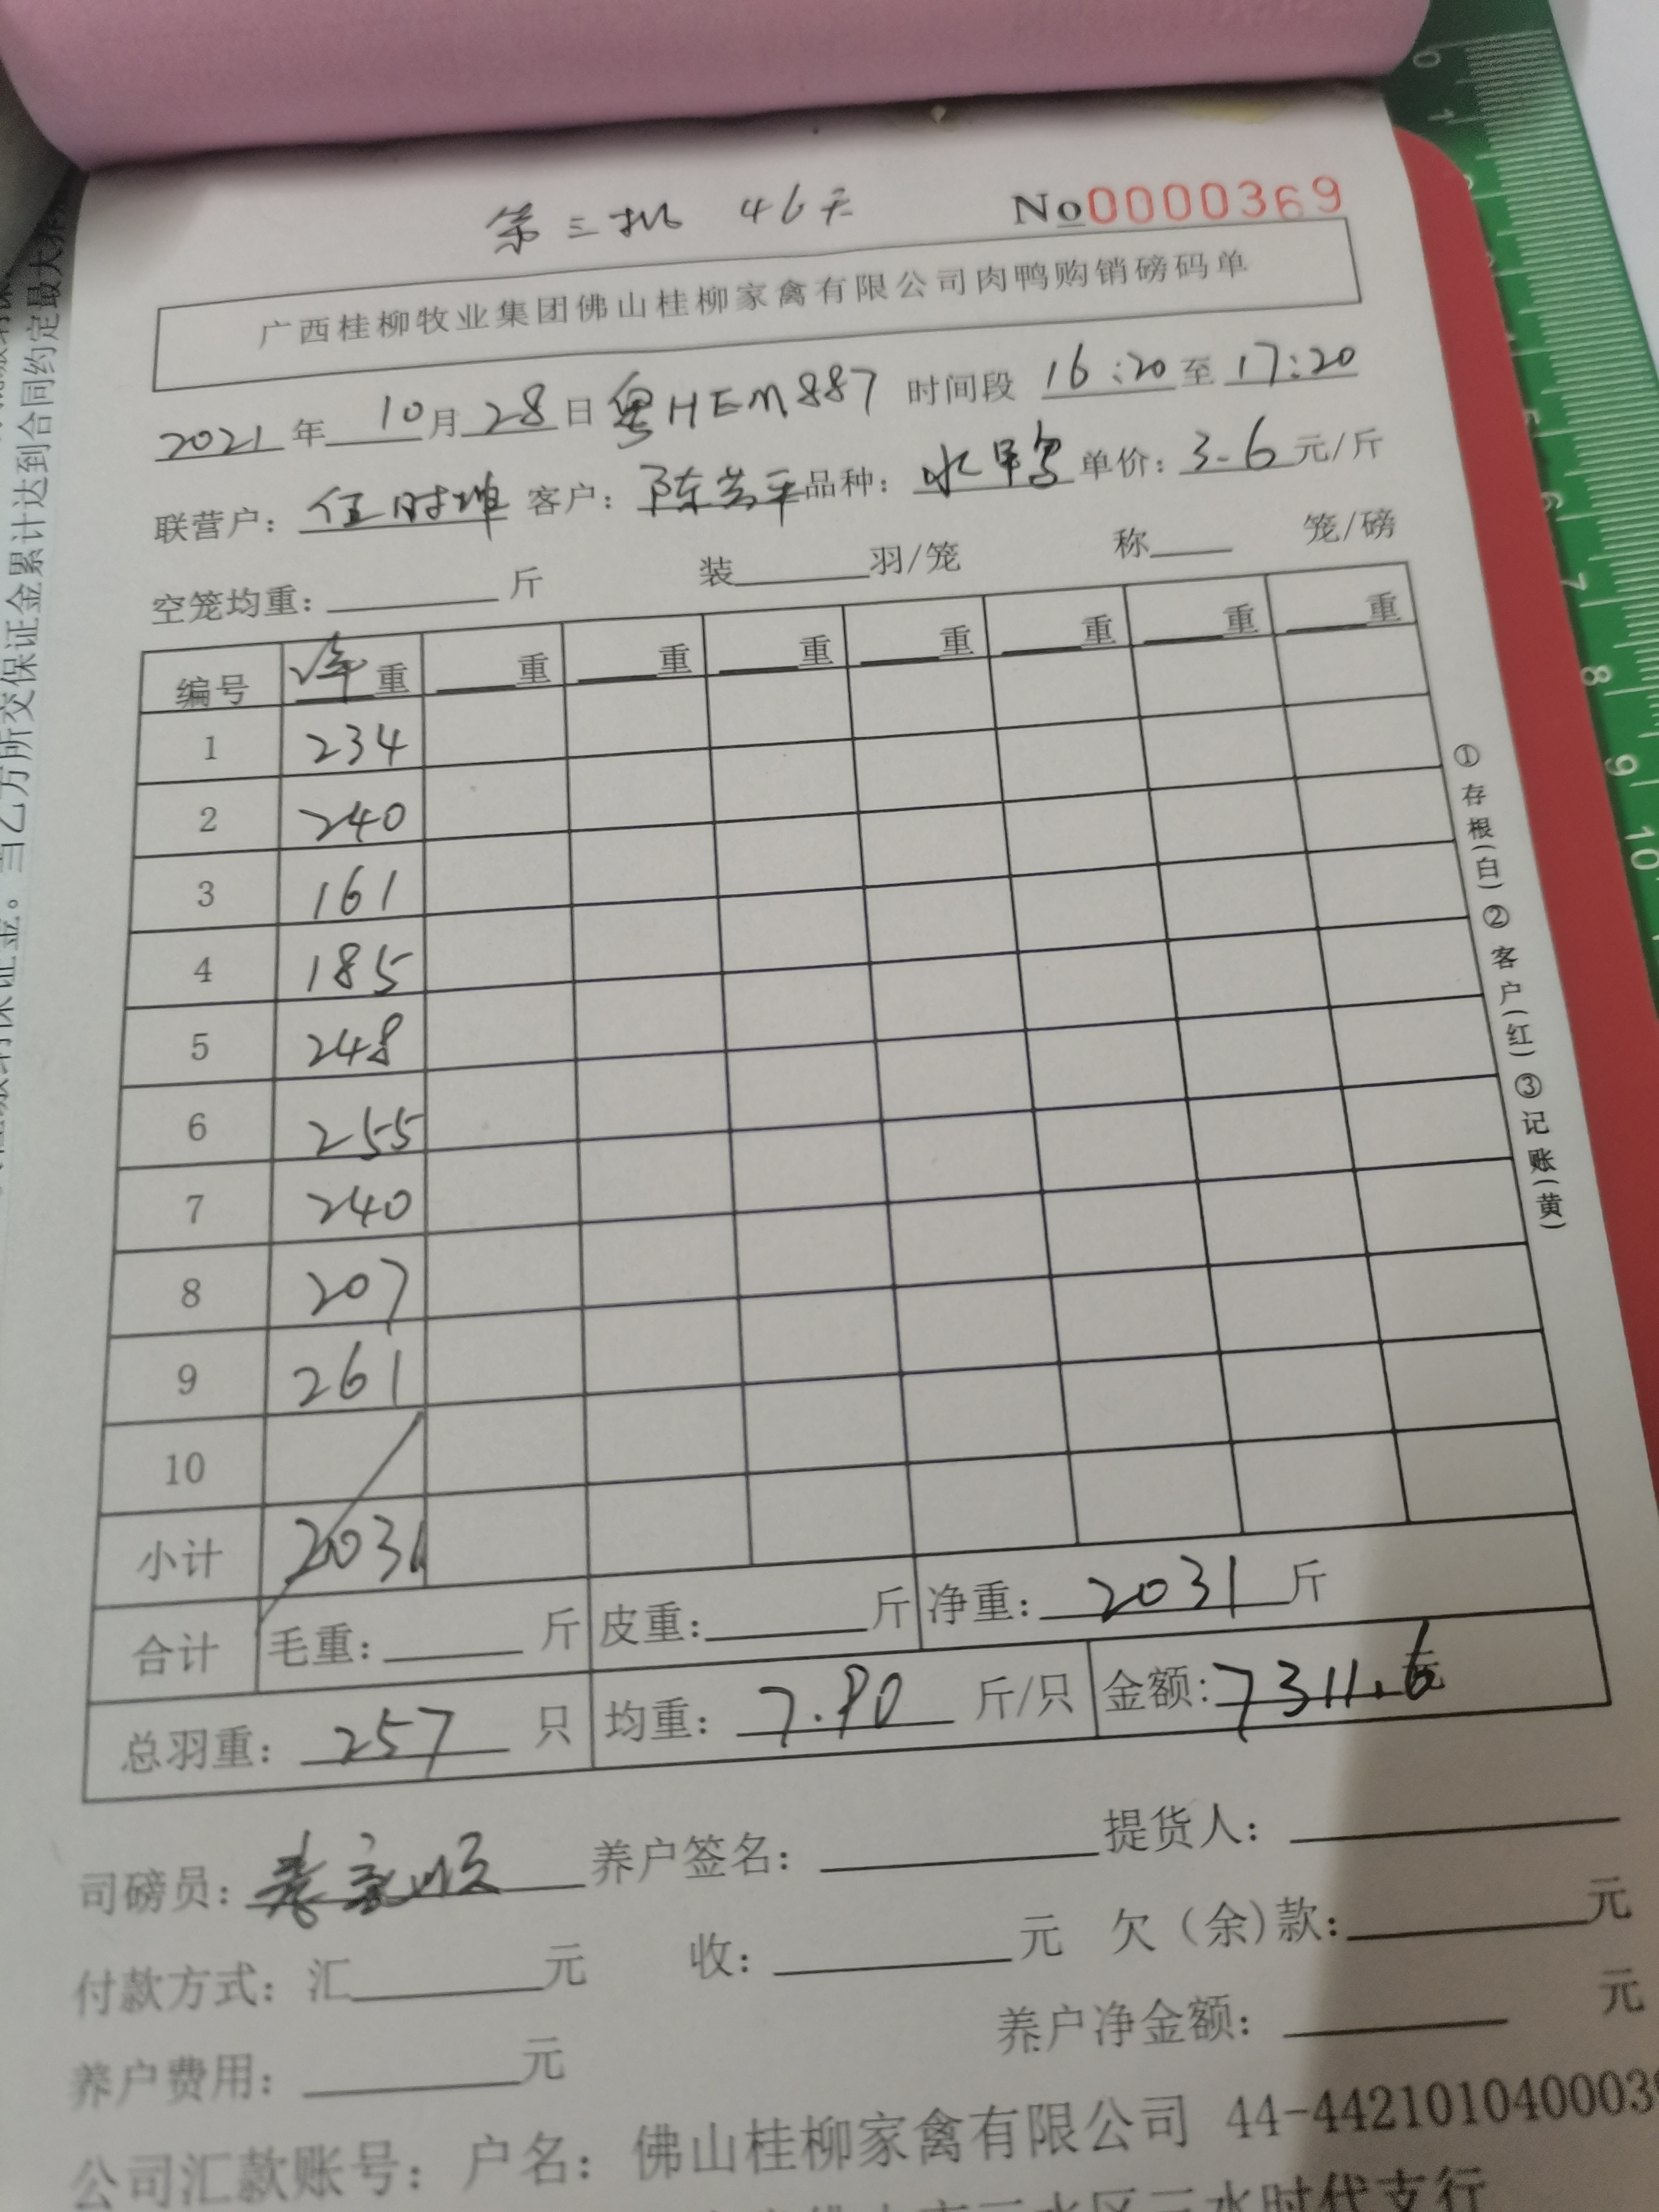 第三批 46天
No 0000369
广西桂柳牧业集团佛山桂柳家禽有限公司肉鸭购销磅码单
2021年10月28日 粤HEM887 时间段 16:20至17:20
联营户: 伍时 客户: 陈 品种: 水 单价: 3.6元/斤
空笼均重: 斤 装 羽/笼 称 笼/磅
编号 净重 重 重 重 重 重 重 重
1 234
2 240
3 161
4 185
5 248
6 255
7 240
8 207
9 261
10
小计 2031
合计 毛重: 斤 皮重: 斤 净重: 2031 斤
总羽重: 257 只 均重: 7.90 斤/只 金额: 7311.6元
司磅员: 家顺 养户签名: 提货人:
付款方式: 汇 元 收: 元 欠(余)款: 元
养户费用: 元 养户净金额: 元
公司汇款账号: 户名: 佛山桂柳家禽有限公司 44-442101040003
三水区三水时代支行
①存根(白)②客户(红)③记账(黄)
证金。当乙方所交保证金累计达到合同约定最大